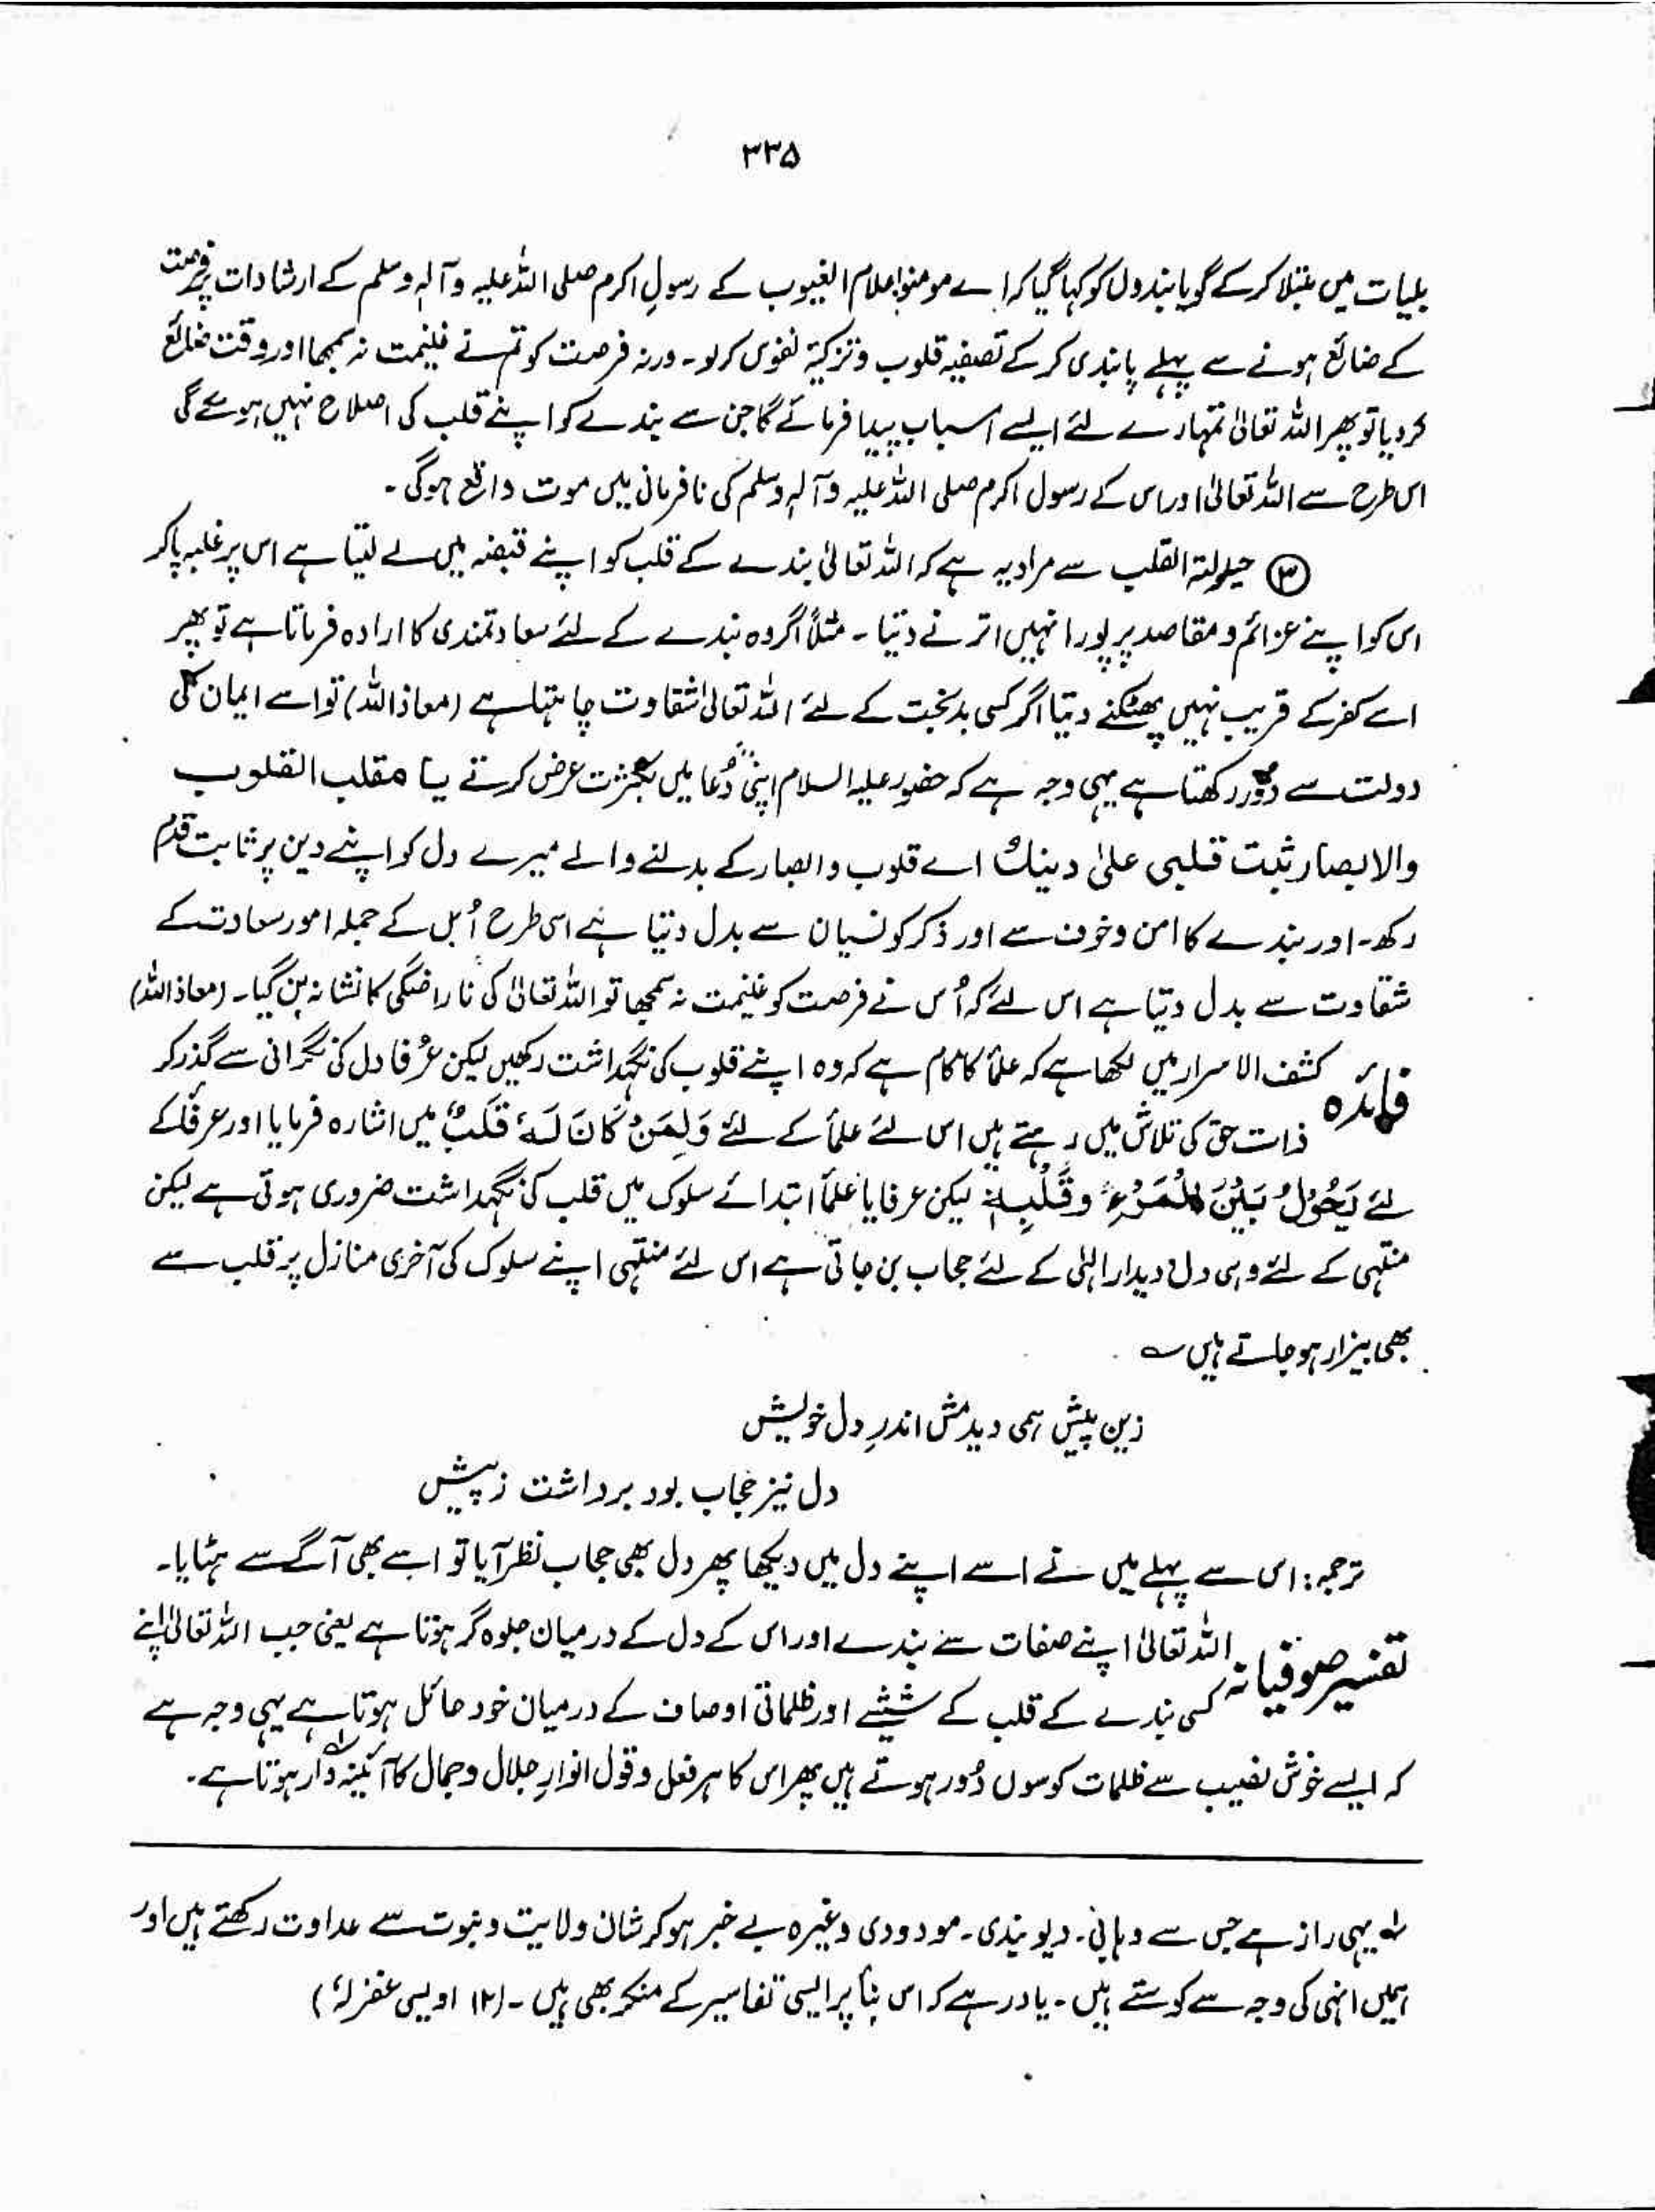 ۳۳۵
بلیات میں مبتلا کر کے گویا بندوں کو کہا گیا کہ اے مومنو! علام الغیوب کے رسولِ اکرم صلی اللہ علیہ وآلہٖ وسلم کے ارشادات پر فرصت
کے ضائع ہونے سے پہلے پابندی کر کے تصفیہ قلوب و تزکیۂ نفوس کر لو۔ ورنہ فرصت کو تم نے غنیمت نہ سمجھا اور وقت ضائع
کر دیا تو پھر اللہ تعالیٰ تمہارے لئے ایسے اسباب پیدا فرمائے گا جن سے بندے کو اپنے قلب کی اصلاح نہیں ہو سکے گی
اس طرح سے اللہ تعالیٰ اور اس کے رسول اکرم صلی اللہ علیہ وآلہٖ وسلم کی نافرمانی میں موت واقع ہوگی۔
③ حیلولۃ القلب سے مراد یہ ہے کہ اللہ تعالیٰ بندے کے قلب کو اپنے قبضہ میں لے لیتا ہے اس پر غلبہ پا کر
اس کو اپنے عزائم و مقاصد پر پورا نہیں اترنے دیتا۔ مثلاً اگر وہ بندے کے لئے سعادتمندی کا ارادہ فرماتا ہے تو پھر
اسے کفر کے قریب نہیں پھٹکنے دیتا اگر کسی بدبخت کے لئے اللہ تعالیٰ شقاوت چاہتا ہے (معاذ اللہ) تو اسے ایمان کی
دولت سے دُور رکھتا ہے یہی وجہ ہے کہ حضور علیہ السلام اپنی دُعا میں بکثرت عرض کرتے یا مقلب القلوب
والابصار ثبت قلبی علیٰ دینك اے قلوب و ابصار کے بدلنے والے میرے دل کو اپنے دین پر ثابت قدم
رکھ۔ اور بندے کا امن و خوف سے اور ذکر کو نسیان سے بدل دیتا ہے اسی طرح اُس کے جملہ امور سعادت کے
شقاوت سے بدل دیتا ہے اس لئے کہ اُس نے فرصت کو غنیمت نہ سمجھا تو اللہ تعالیٰ کی ناراضگی کا نشانہ بن گیا۔ (معاذ اللہ)
فائدہ کشف الاسرار میں لکھا ہے کہ علمأ کا کام ہے کہ وہ اپنے قلوب کی نگہداشت رکھیں لیکن عُرفا دل کی نگرانی سے گذر کر
ذات حق کی تلاش میں رہتے ہیں اس لئے علمأ کے لئے وَلِمَنْ كَانَ لَهٗ قَلْبٌ میں اشارہ فرمایا اور عرفأ کے
لئے يَحُوْلُ بَيْنَ الْمَرْءِ وَقَلْبِهٖ لیکن عرفا یا علمأ ابتدائے سلوک میں قلب کی نگہداشت ضروری ہوتی ہے لیکن
منتہی کے لئے وہی دل دیدارِ الٰہی کے لئے حجاب بن جاتی ہے اس لئے منتہی اپنے سلوک کی آخری منازل پر قلب سے
بھی بیزار ہو جاتے ہیں ؎
زین پیش ہمی دیدمش اندر دل خویش
دل نیز حجاب بود برداشت ز پیش
ترجمہ: اس سے پہلے میں نے اسے اپنے دل میں دیکھا پھر دل بھی حجاب نظر آیا تو اسے بھی آگے سے ہٹایا۔
تفسیر صوفیانہ اللہ تعالیٰ اپنے صفات سے بندے اور اس کے دل کے درمیان جلوہ گر ہوتا ہے یعنی جب اللہ تعالیٰ اپنے
کسی بندے کے قلب کے شیشے اور ظلماتی اوصاف کے درمیان خود حائل ہوتا ہے یہی وجہ ہے
کہ ایسے خوش نصیب سے ظلمات کوسوں دُور ہوتے ہیں پھر اس کا ہر فعل و قول انوارِ جلال و جمال کا آئینہ دار ہوتا ہے۔
لہ یہی راز ہے جس سے وہابی۔ دیوبندی۔ مودودی وغیرہ بے خبر ہو کر شان ولایت و نبوت سے عداوت رکھتے ہیں اور
ہمیں انہی کی وجہ سے کوستے ہیں۔ یاد رہے کہ اس بنأ پر ایسی تفاسیر کے منکر بھی ہیں۔ (۱۲ اویسی غفرلہٗ)